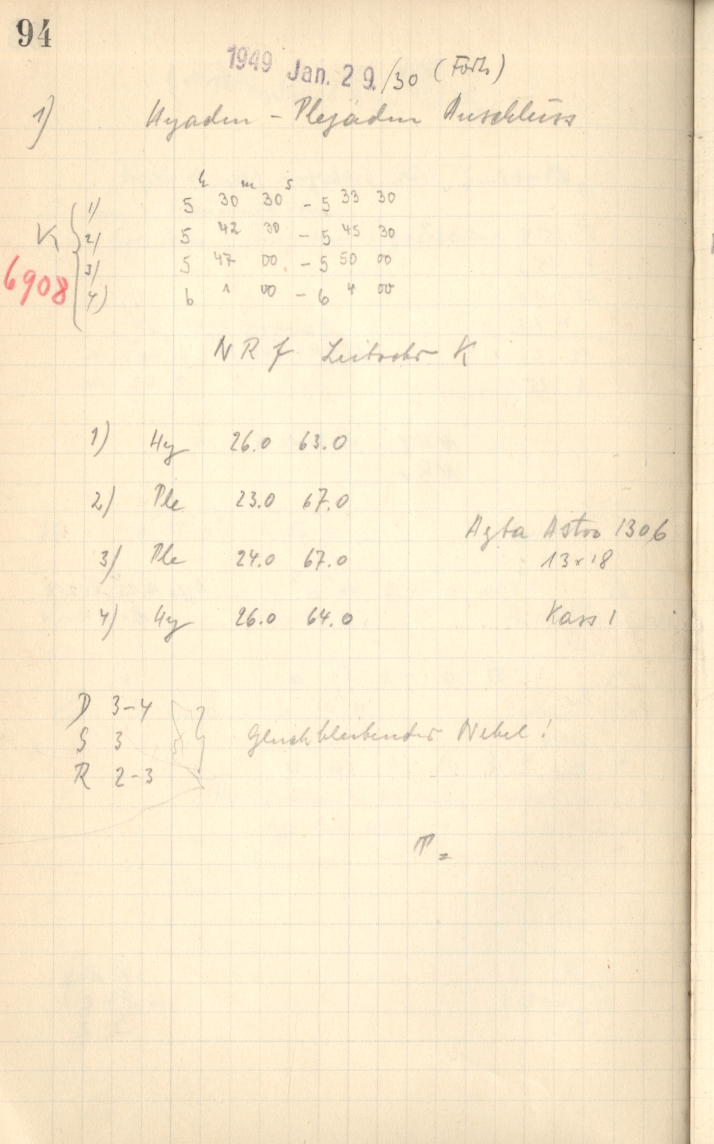 94
1949 Jan. 29./30 (Forts)
1) Hyaden - Plejaden Anschluss
h m s
1) 5 30 30 - 5 33 30
K 2) 5 42 30 - 5 45 30
6908 3) 5 47 00 - 5 50 00
4) 6 1 00 - 6 4 00
NRf K
1) Hy 26.0 63.0
2) Ple 23.0 67.0
Agfa Astro 1306
3) Ple 24.0 67.0 13x18
4) Hy 26.0 64.0 Kass 1
D 3-4
S 3 gleichbleibender Nebel!
R 2-3
T =